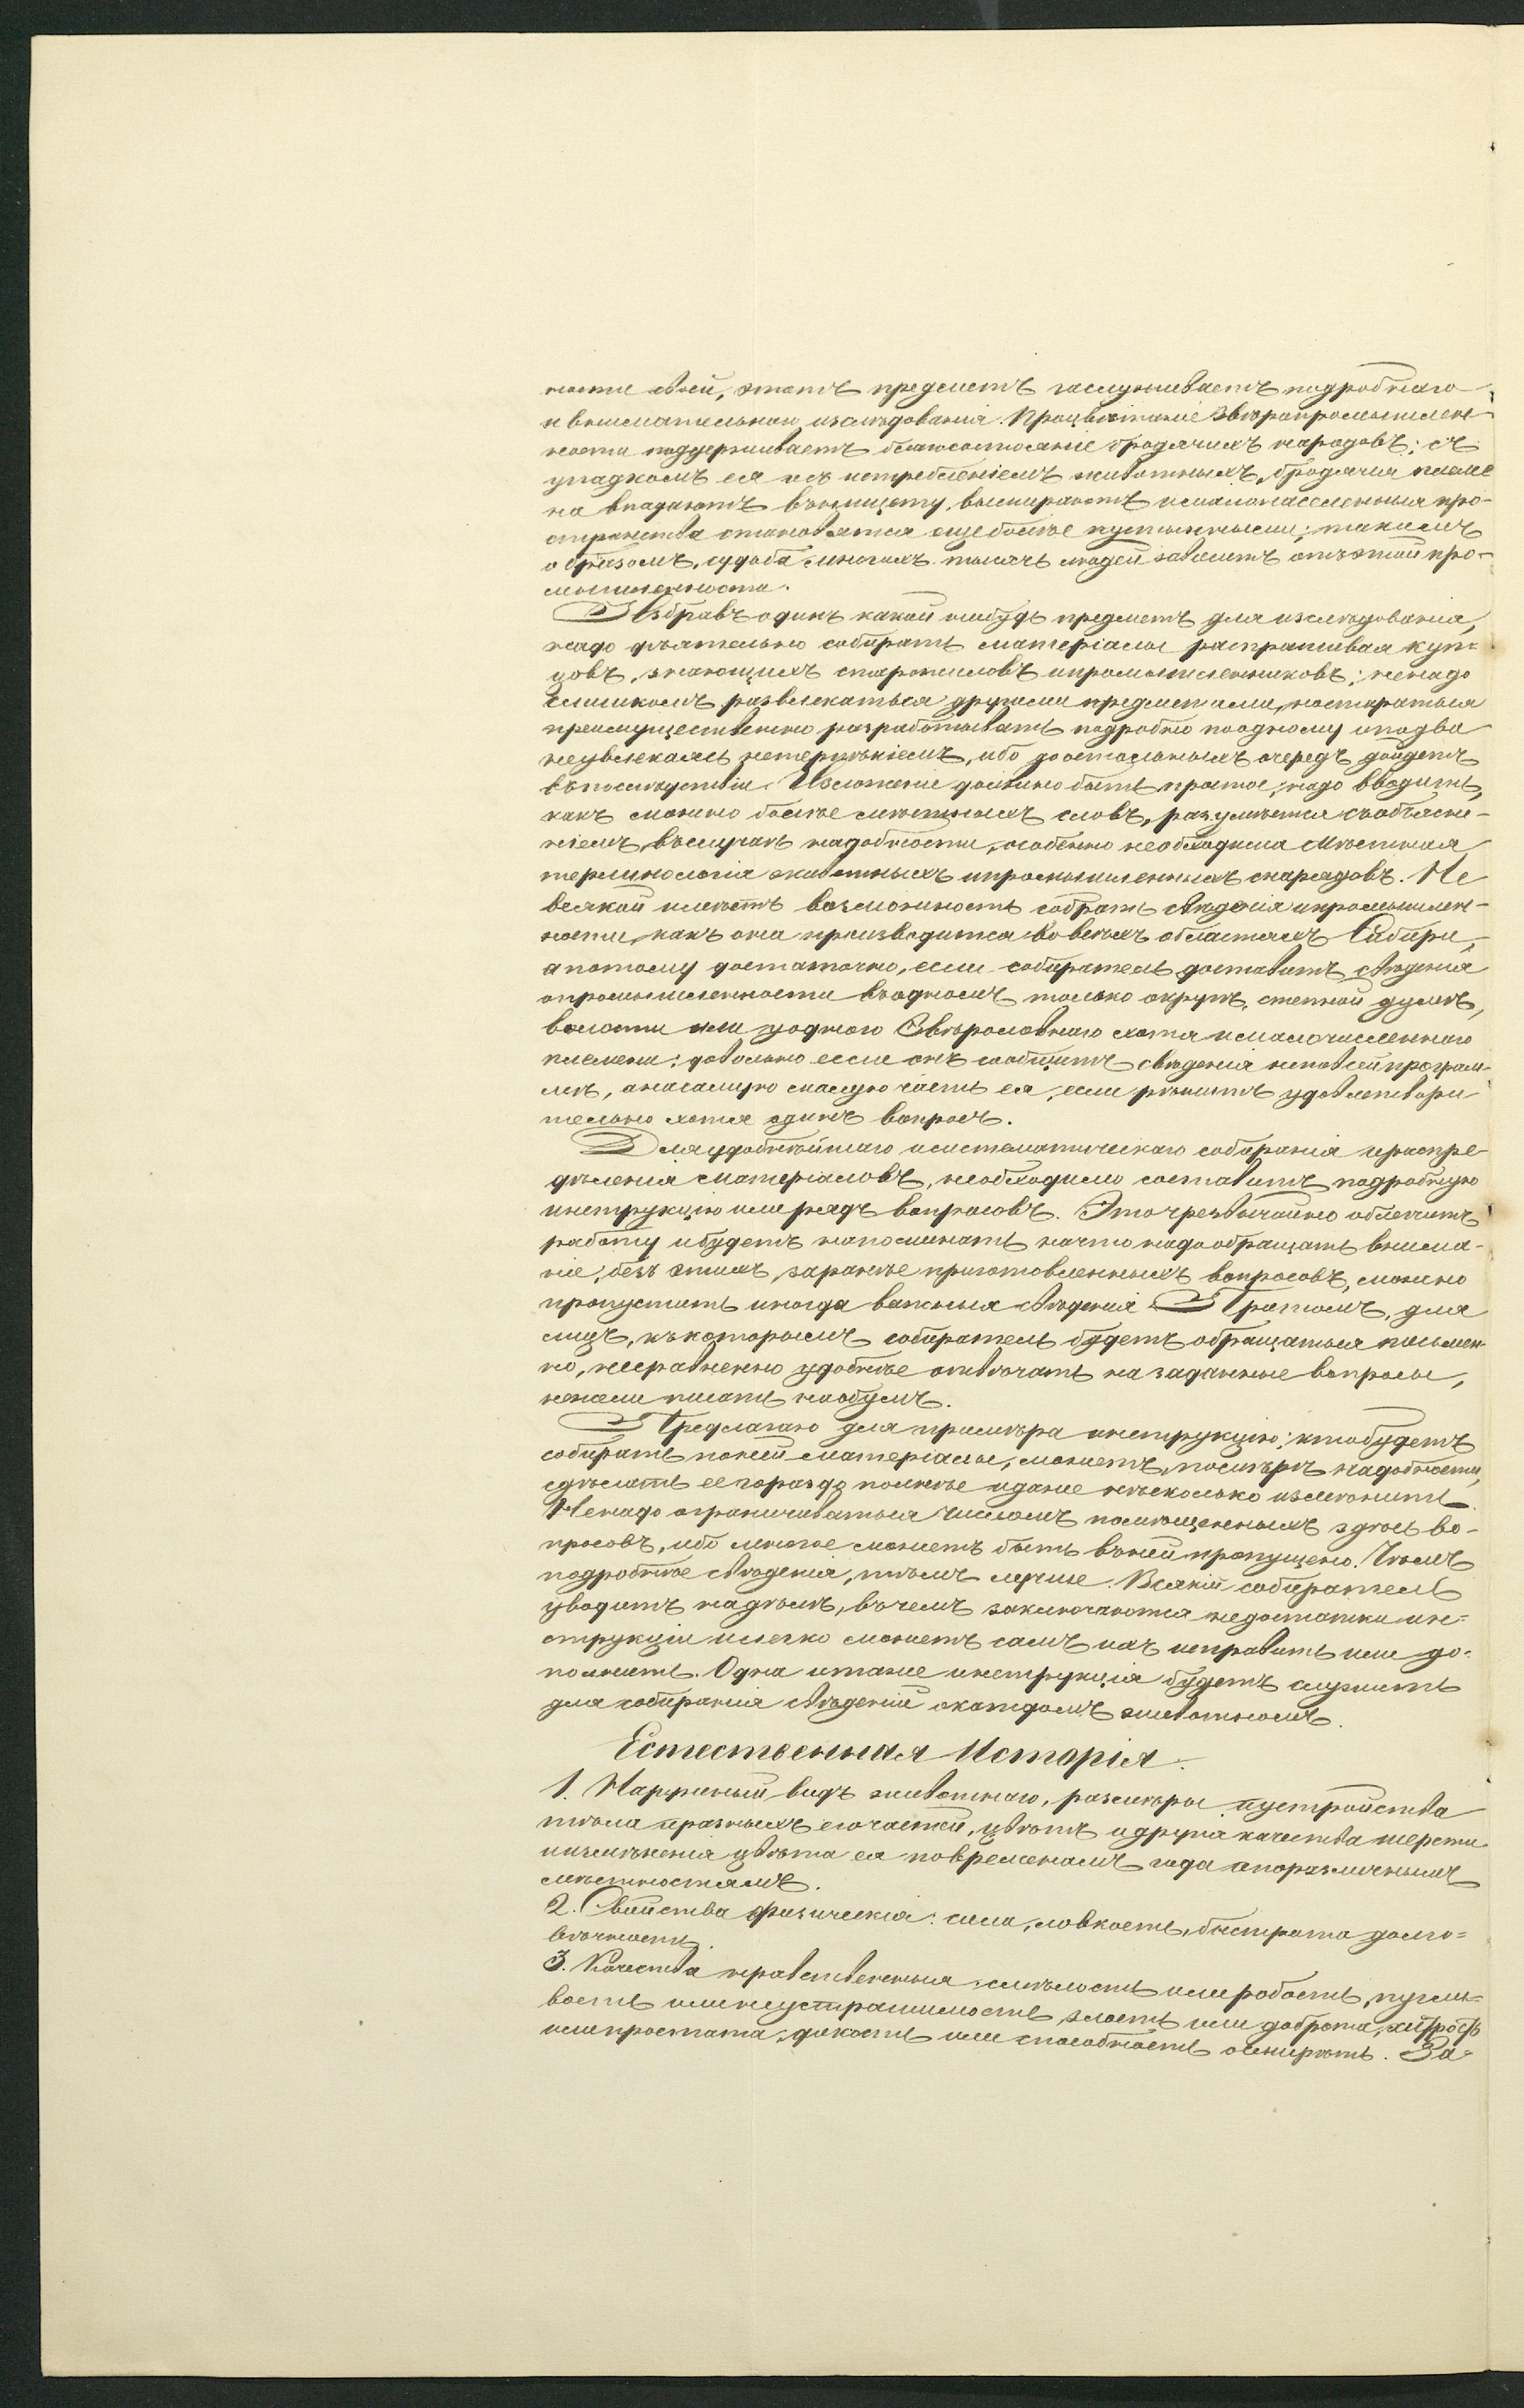 ности своей, этотъ предметъ заслуживаетъ подробнаго
и внимательнаго изслѣдованія. Процвѣтаніе Звѣропромышлен-
ности поддерживаетъ благосостояніе бродячихъ народовъ; съ
упадкомъ ея и съ истребленіемъ животныхъ, бродячія племе
на впадаютъ въ нищету, вымираютъ и малонаселенныя про-
странства становятся еще болѣе пустынными; такимъ
образомъ, судьба многихъ тысячъ людей зависитъ отъ этой про-
мышленности.
Избравъ одинъ какой нибудь предметъ для изслѣдованія,
надо дѣятельно собирать матеріалы распрашивая куп-
цовъ, знающихъ старожиловъ и промышленниковъ; не надо
слишкомъ развлекаться другими предметами, постараться
преимущественно разработывать подробно по одному и по два
не увлекаясь нетерпѣніемъ, ибо до остальныхъ очередь дойдетъ
въ послѣдствіи. Изложеніе должно быть простое, надо вводить,
какъ можно болѣе мѣстныхъ словъ, разумѣется съ объясне-
ніемъ, въ случаѣ надобности, особенно необходима мѣстная
терминологія животныхъ и промышленныхъ снарядовъ. Не
всякой имѣетъ возможность собрать свѣденія и промышлен-
ности, какъ она производится во всѣхъ областяхъ Сибири,
а потому достаточно, если собиратель доставитъ свѣденія
о промышленности въ одномъ только округѣ, степной думѣ,
волости или у одного Звѣроловнаго хотя и малочисленнаго
племени; довольно если онъ сообщитъ свѣденія не по всей програм-
мѣ, а на самую малую часть ея, если рѣшитъ удовлетвори
тельно хотя одинъ вопросъ.
Для удобнѣйшаго и систематическаго собиранія и распре-
дѣленія матеріаловъ, необходимо составить подробную
инструкцію или рядъ вопросовъ. Это чрезвычайно облегчитъ
работу и будетъ напоминать на что надо обращать внима-
ніе; безъ этихъ, заранѣе приготовленныхъ вопросовъ, можно
пропустить иногда важныя свѣденія. Притомъ, для
лицъ, къ которымъ собиратель будетъ обращаться письмен-
но, несравненно удобнѣе отвѣчать на заданные вопросы,
нежели писать наобумъ.
Предлагаю для примѣра инструкцію; кто будетъ
собирать по ней матеріалы, можетъ, по мѣрѣ надобности,
сдѣлать ее гораздо полнѣе и даже нѣсколько измѣнить.
Не надо ограничиваться числомъ помѣщенныхъ здѣсь во-
просовъ, ибо многое можетъ быть въ ней пропущено. Чѣмъ
подробнѣе свѣденія, тѣмъ лучше. Всякій собиратель
увидитъ на дѣлѣ, въ чемъ заключаются недостатки ин-
струкціи и легко можетъ самъ ихъ исправить или до-
полнить. Одна и таже инструкція будетъ служить
для собиранія свѣденій о каждомъ животномъ.
Естественная Исторія.
1. Наружный видъ животнаго, размѣры и устройства
тѣла и разныхъ его частей, цвѣтъ и другія качества шерсти
и измѣненія цвѣта ея по временамъ года и по различнымъ
мѣстностямъ.
2. Свойства физическія: сила, ловкость, быстрота долго-
вѣчность.
3. Качества нравственныя: смѣлость или робость, пугли-
вость или неустрашимость, злость или доброта, хитрость
или простата, дикость или способность